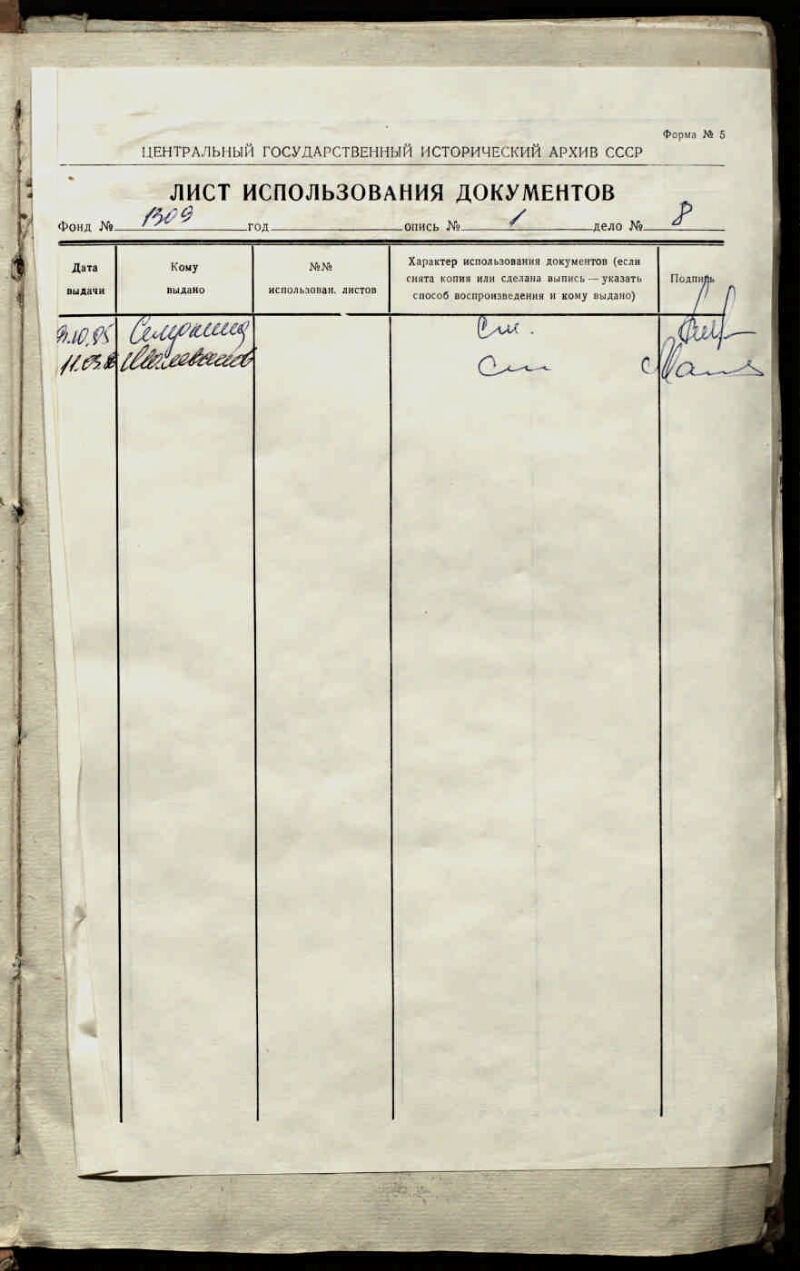 Форма № 5
ЦЕНТРАЛЬНЫЙ ГОСУДАРСТВЕННЫЙ ИСТОРИЧЕСКИЙ АРХИВ СССР
ЛИСТ ИСПОЛЬЗОВАНИЯ ДОКУМЕНТОВ
Фонд № 1309 год опись № 1 дело № 8
Дата выдачи
Кому выдано
№№ использован. листов
Характер использования документов (если
снята копия или сделана выпись — указать
способ воспроизведения и кому выдано)
Подпись